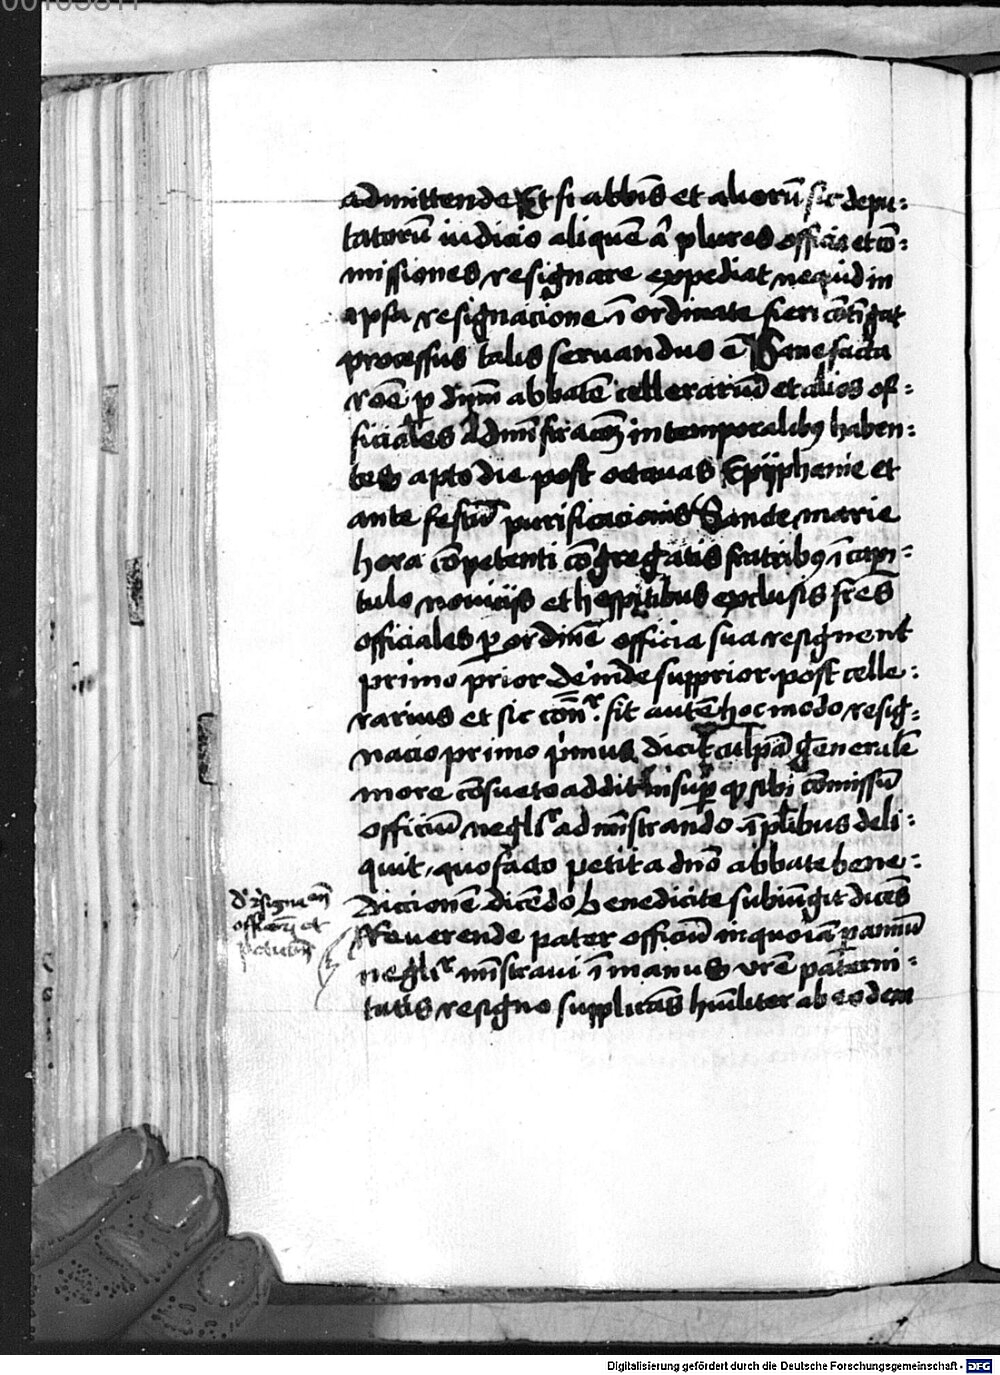 admittende Et si abbis et alioru sic depu:
tatoru iudicio aliquē aī plures officia et cō:
missiones resignare expediat ne quid in
ipsa resignacione īordinate fieri cōtīgat
processus talis seruandus ē Sane facta
rōe p dnm abbatē cellerariū et alios of:
ficiales admīstracōem in temporalibꝯ haben:
tes apto die post octauas Epyphanie et
ante festū purificacionis Sancte marie
hora cōpetenti cōgregatis fratribꝯ ī capi:
tulo nouicijs et hospitibus exclusis
officiales p ordinē officia sua resignent
primo prior deinde supprior post celle:
rarius et sic fit autē hoc modo resig:
nacio primo pimus dicit culpā gēneralē
more cōsueto addit insup qp sibi cōmissū
officiū neglr admīstrando ī plibus deli:
quit, quo facto petita dnō abbate bene:
diccionē dicēdo benedicite subiūgit dicēs
Reuerende pater officiū in quo iā p annū
neglr mīstraui ī manus vrē paterni:
tatis resigno supplicās hūiliter ab eodem
officiorū et
00103811
Digitalisierung gefördert durch die Deutsche Forschungsgemeinschaft - DFG